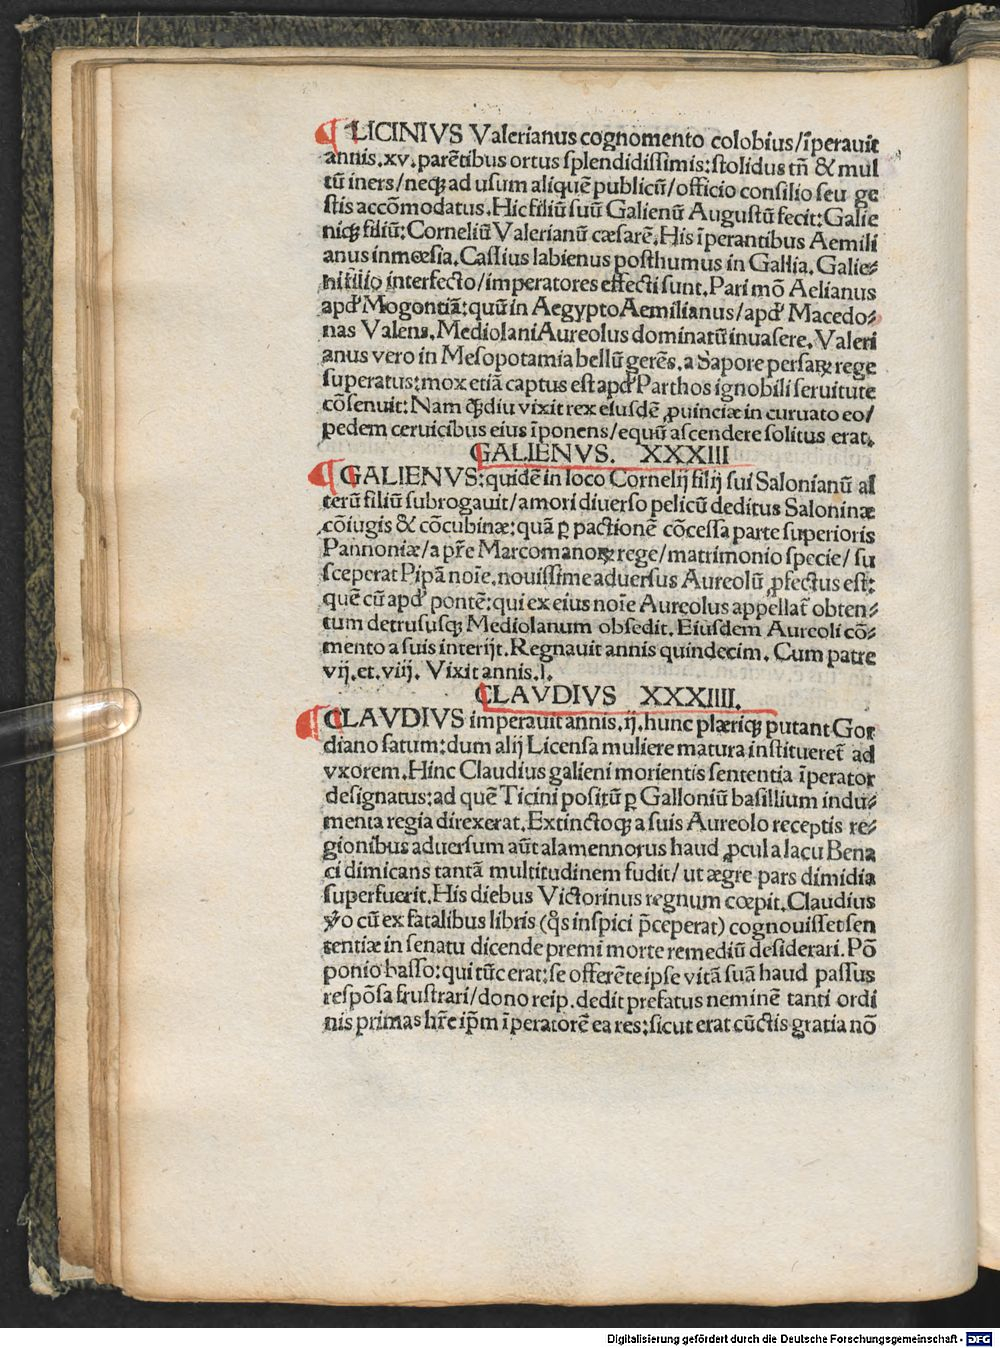 ¶ LICINIVS Valerianus cognomento colobius/īperauit
annis.xv.parētibus ortus ſplendidiſſimis:ſtolidus tñ & mul
tū iners/neqꝫ ad uſum aliquē publicū/officio conſilio ſeu ge
ſtis accōmodatus.Hic filiū ſuū Galienū Auguſtū fecit:Galie
niqꝫ filiū:Corneliū Valerianū cæſarē.His īperantibus Aemili
anus in mœſia.Caſſius labienus poſthumus in Gallia.Galie⸗
ni filio interfecto/imperatores effecti ſunt.Pari mō Aelianus
apđ Mogontiā:quū in Aegypto Aemilianus/apđ Macedo⸗
nas Valens.Mediolani Aureolus dominatū inuaſere.Valeri
anus vero in Meſopotamia bellū gerēs.a Sapore perſaꝝ rege
ſuperatus:mox etiā captus eſt apđ Parthos ignobili ſeruitute
cōſenuit:Nam qꝫdiu vixit rex eiuſdē ꝓuinciæ in curuato eo/
pedem ceruicibus eius īponens/equū aſcendere ſolitus erat.
GALIENVS. XXXIII
¶ GALIENVS:quidē in loco Cornelij filij ſui Salonianū al
terū filiū ſubrogauit/amori diuerſo pelicū deditus Saloninæ
cōiugis & cōcubinæ:quā ꝑ pactionē cōceſſa parte ſuperioris
Pannoniæ/a pr̄e Marcomanoꝝ rege/matrimonio ſpecie/ſu
ſceperat Pipā noīe.nouiſſime aduerſus Aureolū ꝓfectus eſt:
quē cū apđ pontē:qui ex eius noīe Aureolus appellat̄ obten⸗
tum detruſuſqꝫ Mediolanum obſedit.Eiuſdem Aureoli cō⸗
mento a ſuis interijt.Regnauit annis quindecim.Cum patre
vij.et.viij. Vixit annis.l.
CLAVDIVS XXXIIII.
¶ CLAVDIVS imperauit annis.ij.hunc plæriqꝫ putant Gor
diano ſatum:dum alij Licenſa muliere matura inſtitueret̄ ad
vxorem.Hinc Claudius galieni morientis ſententia īperator
deſignatus:ad quē Ticini poſitū ꝑ Galloniū baſillium indu⸗
menta regia direxerat.Extinctoqꝫ a ſuis Aureolo receptis re⸗
gionibus aduerſum aūt alamennorus haud ꝓcul a lacu Bena
ci dimicans tantā multitudinem fudit/ut ægre pars dimidia
ſuperfuerit.His diebus Victorinus regnum cœpit.Claudius
v̓o cū ex fatalibus libris (q̊s inſpici p̄ceperat) cognouiſſet ſen
tentiæ in ſenatu dicende premi morte remediū deſiderari.Pō
ponio baſſo:qui tūc erat:ſe offerēte ipſe vitā ſuā haud paſſus
reſpōſa fruſtrari/dono reip.dedit prefatus neminē tanti ordi
nis primas hr̄e ip̄m īperatorē ea res:ſicut erat cūctis gratia nō
Digitalisierung gefördert durch die Deutsche Forschungsgemeinschaft - DFG